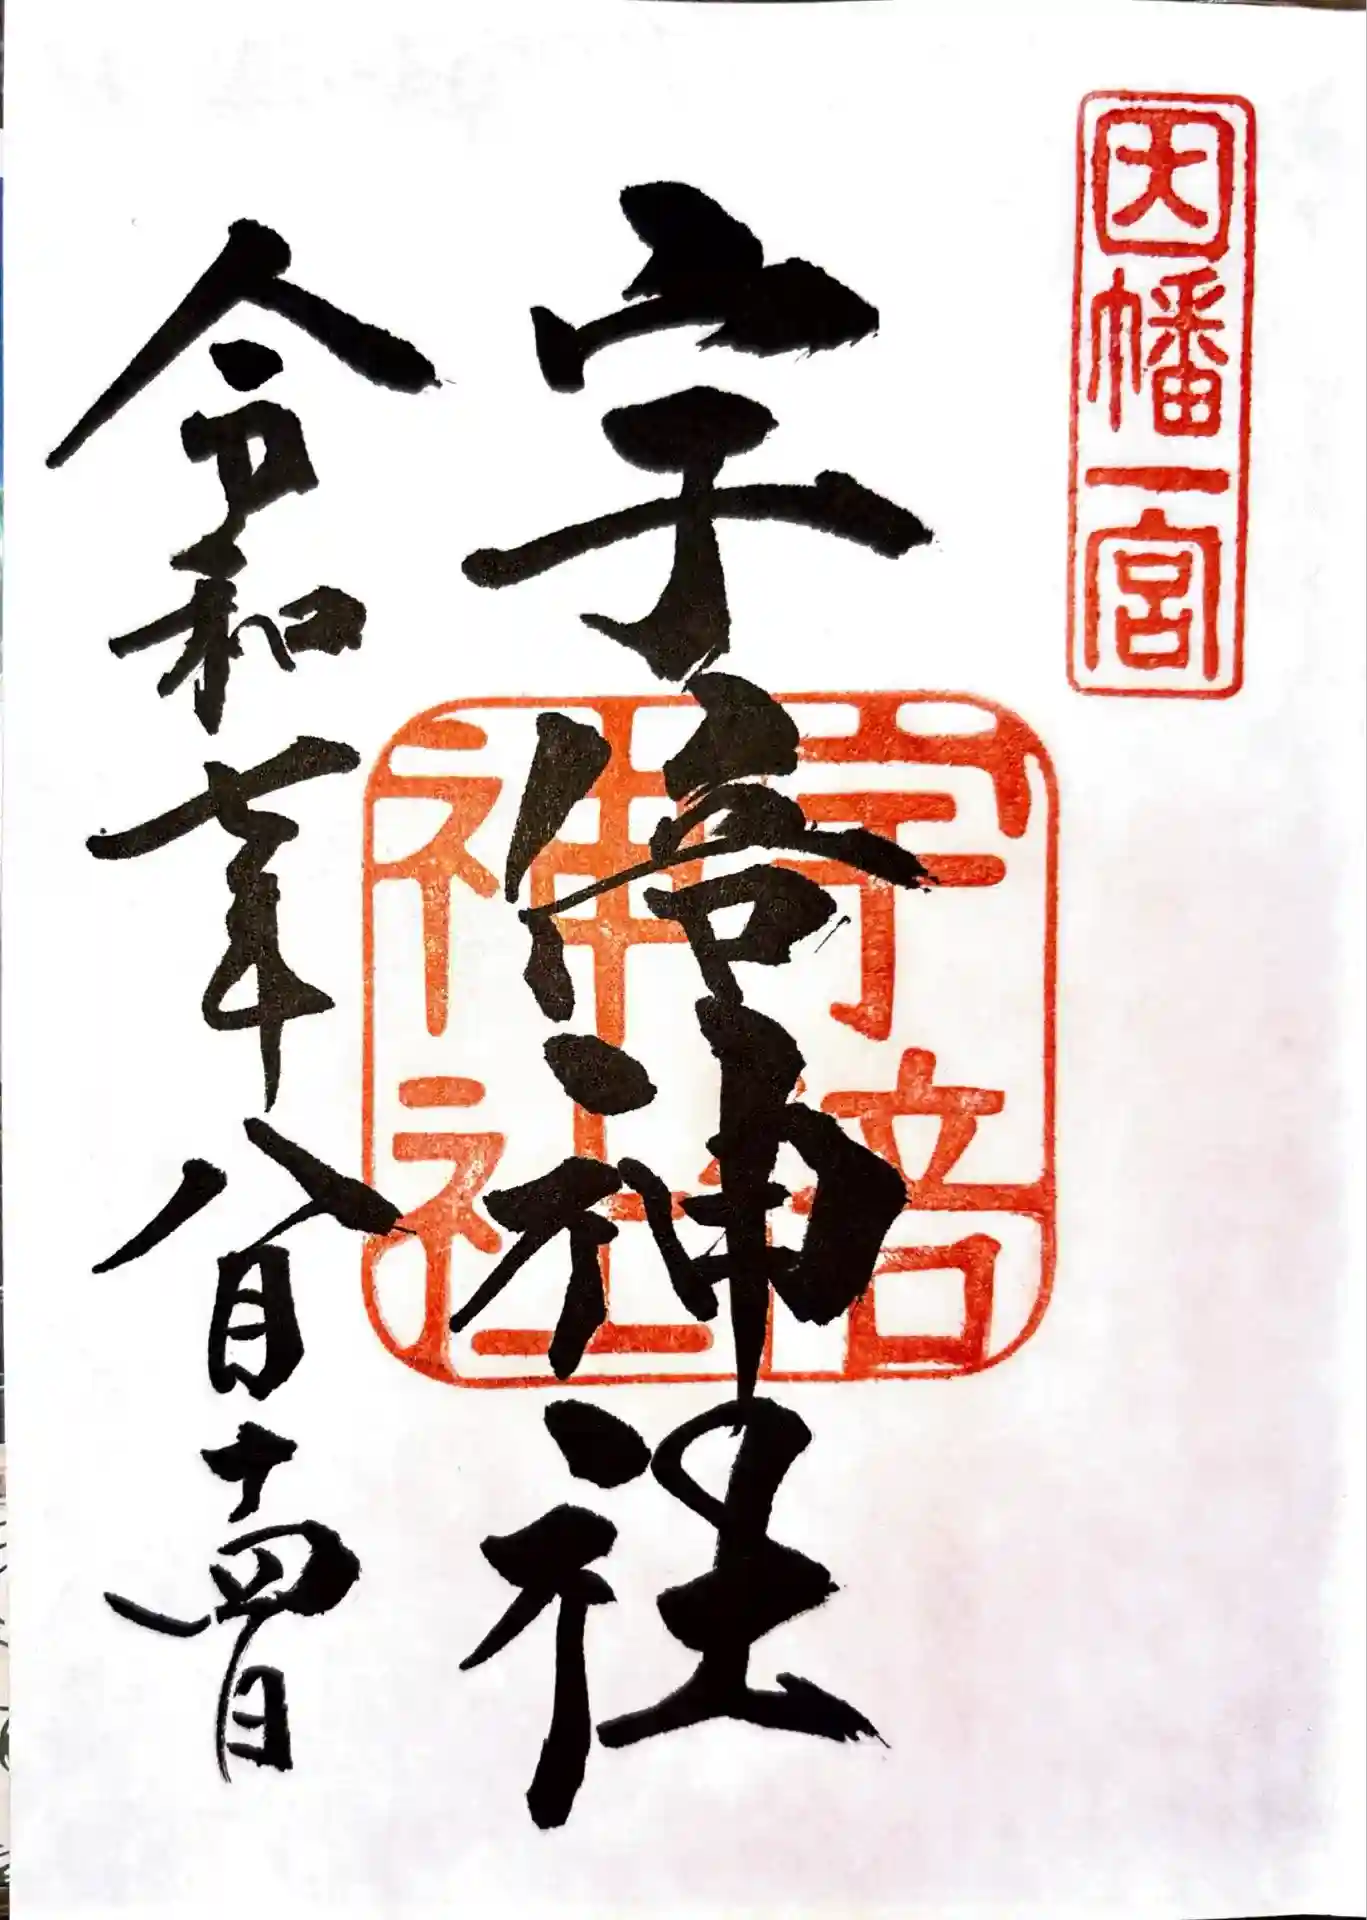 因幡一宮
宇倍神社
宇倍
神社
令和七年八月十四日